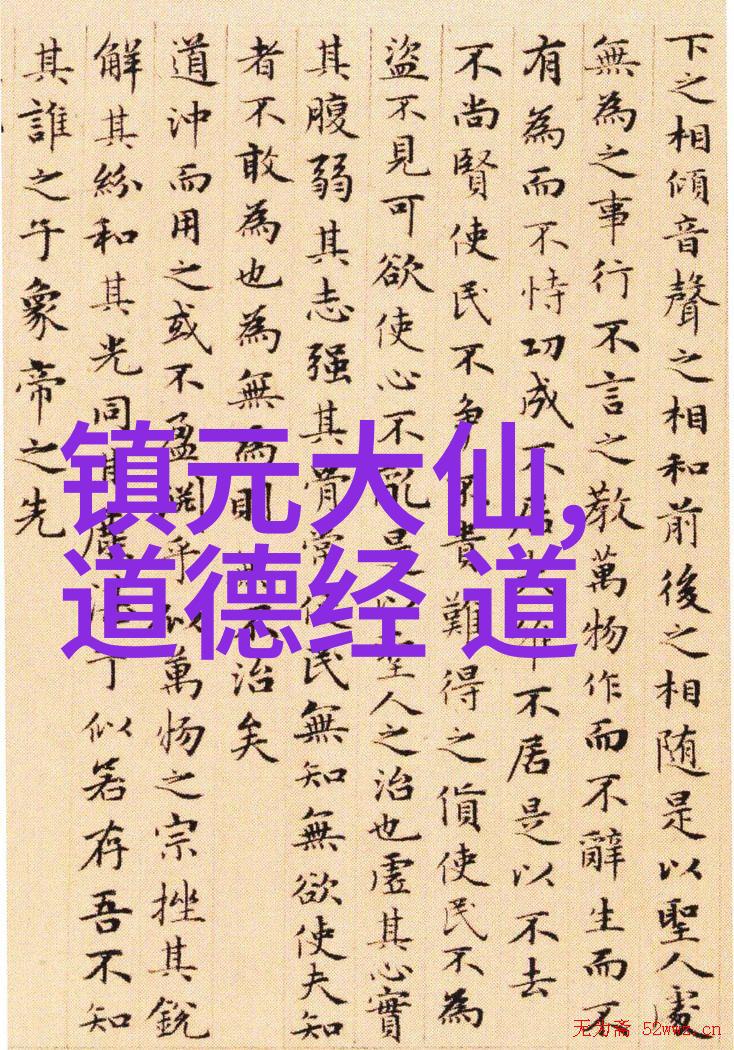 下之相傾音聲之相和前後之相随是以聖人處
無為之事行不言之教萬物作而不辭生而不
有為而不恃功成不居不居是以不去
不尚賢使民不争不貴難得之貨使民不為
盜不見可欲使心不亂是以聖人之治也虛其心實
其腹弱其志强其骨常使民無知無欲使夫知
者不敢為也為無為則無不治矣
道沖而用之或不盈淵乎似萬物之宗挫其銳
解其紛和其光同其塵湛乎似若存吾不知
其誰之子象帝之先
镇元大仙,
道德经 道
无为斋 52wwz.cn